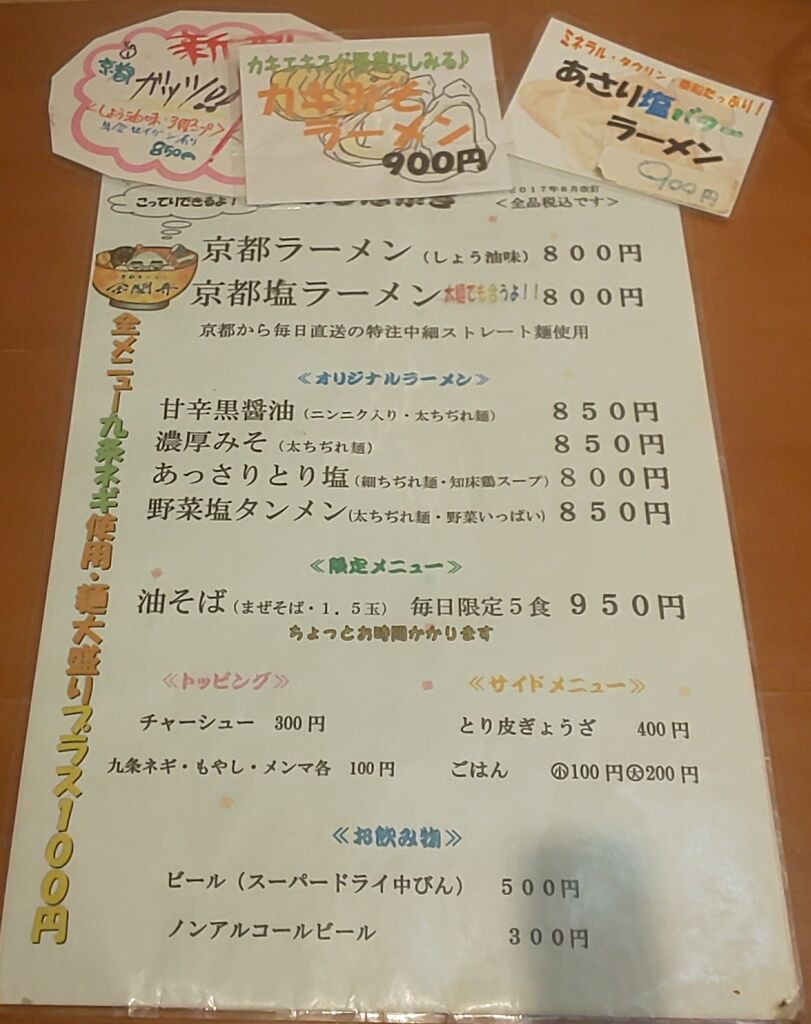 京都 ガッツ!!
850円
カキエキスが
にしみる♪
カキみそ
ラーメン
900円
ミネラル・タウリン・亜鉛たっぷり!
あさり塩バター
ラーメン
900円
こってりできるよ!
2017年8月改訂
<全品税込です>
京都ラーメン(しょう油味) 800円
京都塩ラーメン 太麺でも合うよ!! 800円
京都から毎日直送の特注中細ストレート麺使用
≪オリジナルラーメン≫
甘辛黒醤油(ニンニク入り・太ちぢれ麺) 850円
濃厚みそ(太ちぢれ麺) 850円
あっさりとり塩(細ちぢれ麺・知床鶏スープ) 800円
野菜塩タンメン(太ちぢれ麺・野菜いっぱい) 850円
≪限定メニュー≫
油そば(まぜそば・1.5玉) 毎日限定5食 950円
ちょっとお時間かかります
≪トッピング≫
チャーシュー 300円
九条ネギ・もやし・メンマ各 100円
≪サイドメニュー≫
とり皮ぎょうざ 400円
ごはん ㊙小100円㊛大200円
≪お飲み物≫
ビール(スーパードライ中びん) 500円
ノンアルコールビール 300円
全メニュー九条ネギ使用・麺大盛りプラス100円